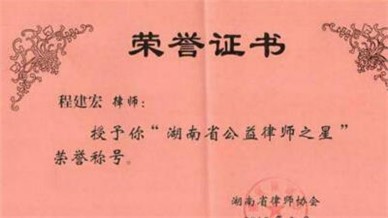 荣誉证书
程建宏 律师:
授予你“湖南省公益律师之星”
荣誉称号。
湖南省律师协会